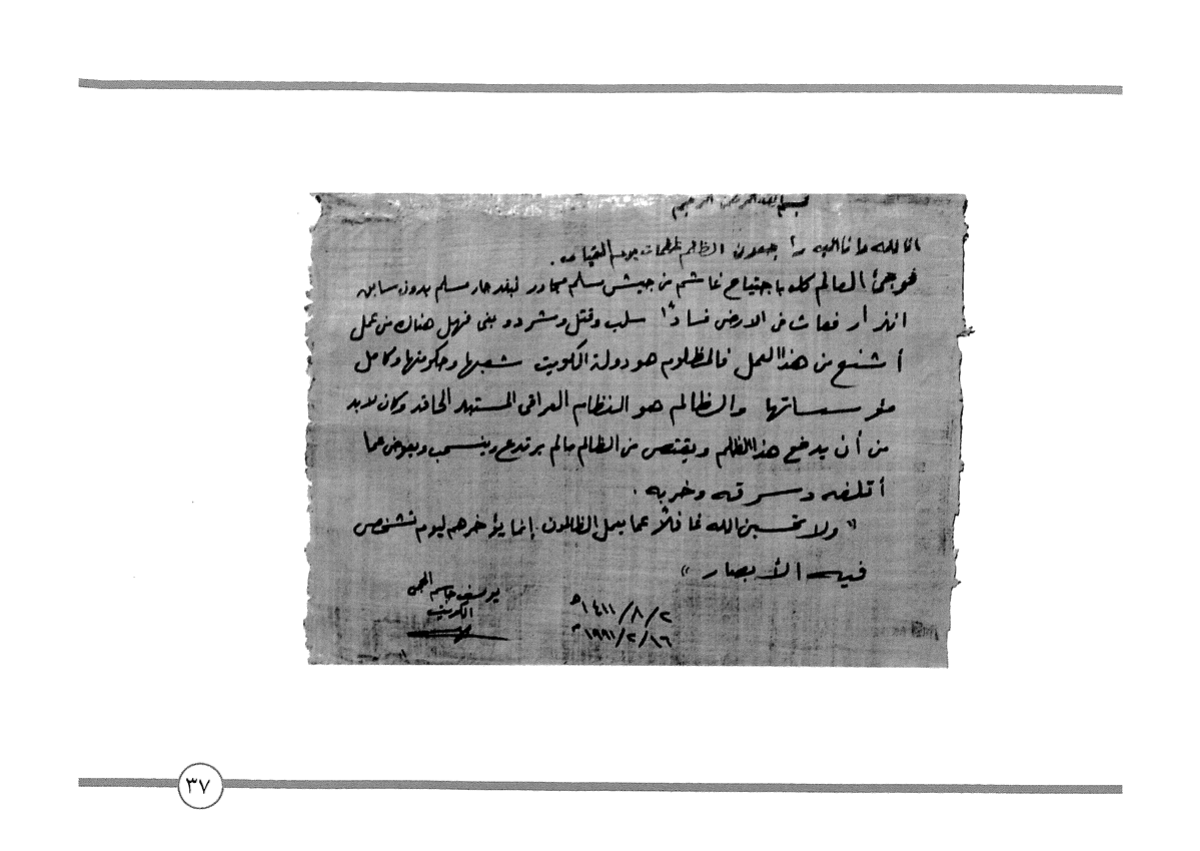 بسم الله الرحمن الرحيم
انا لله وانا اليه راجعون الظالم ظلمات يوم القيامه .
فوجئ العالم كله باجتياح غاشم من جيش مسلم مجاور لبلد جار مسلم بدون سابق
انذار فعاث في الارض فسادًا سلب وقتل وشرد وبغى فهل هناك من عمل
أشنع من هذا العمل فالمظلوم هو دولة الكويت شعبها وحكومتها وكامل
مؤسساتها والظالم هو النظام العراقي المستبد الحاقد وكان لابد
من أن يدفع هذا الظلم ويقتص من الظالم مالم يرتدع وينسحب ويعوض عما
أتلفه وسرقه وخربه .
" ولا تحسبن الله غافلًا عما يعمل الظالمون إنما يؤخرهم ليوم تشخص
فيه الأبصار "
يوسف جاسم الحجي
الكويت
٢/٨/١٤١١هـ
١٦/٢/١٩٩١م
٣٧